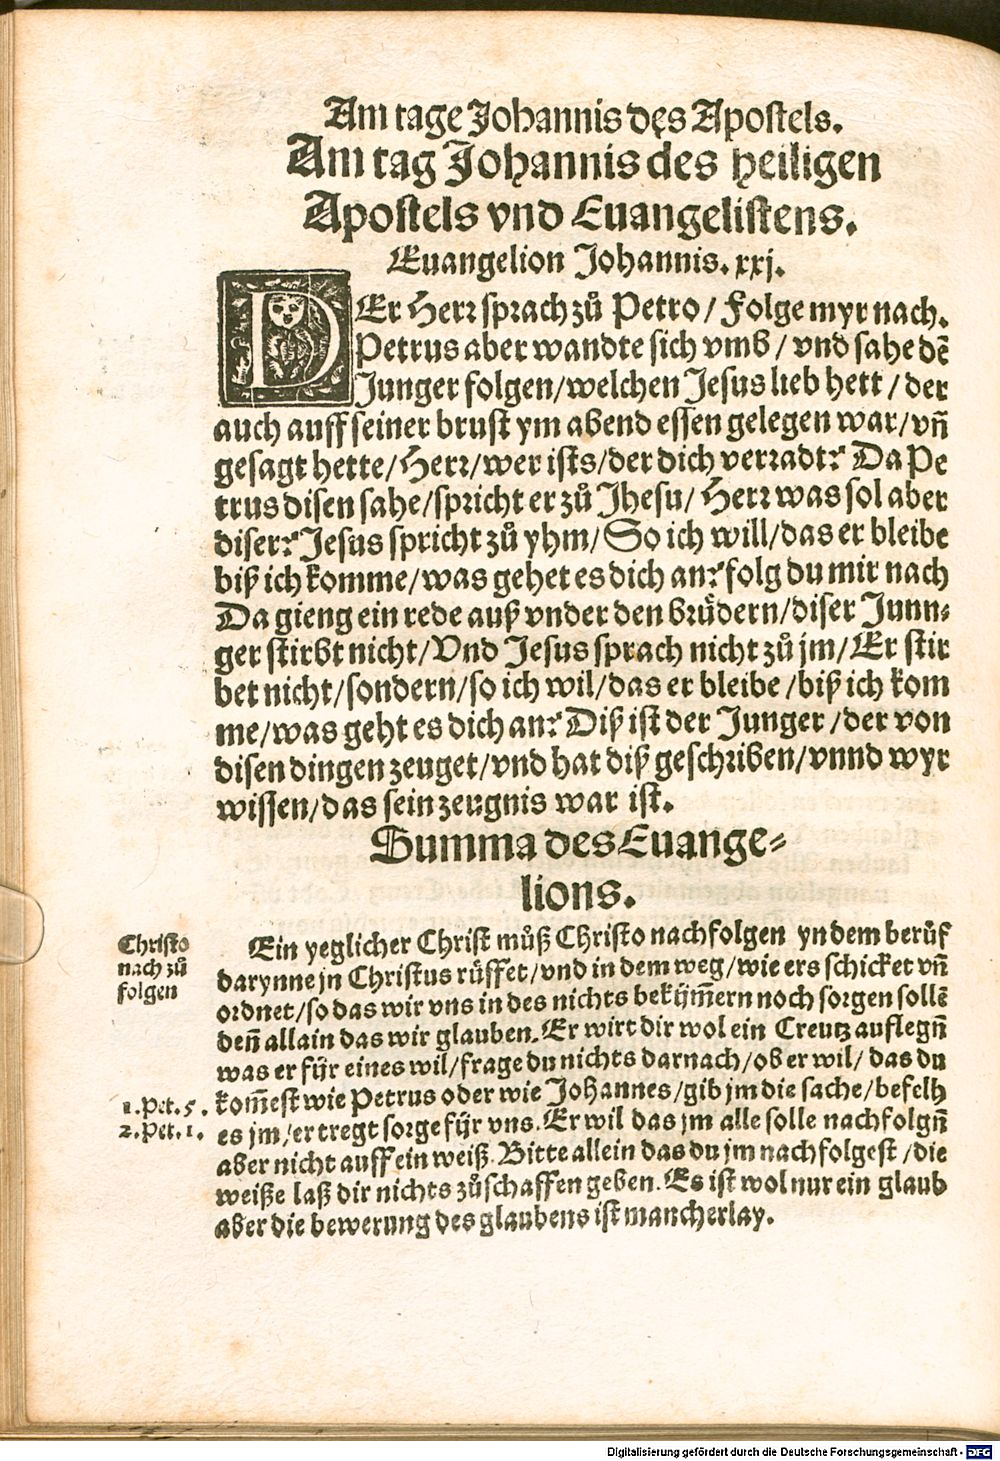 Am tage Johannis des Apostels.
Am tag Johannis des heiligen
Apostels vnd Euangelistens.
Euangelion Johannis. xxj.
DEr Herr sprach zů Petro / Folge myr nach.
Petrus aber wandte sich vmb / vnd sahe dē
Junger folgen/welchen Jesus lieb hett / der
auch auff seiner brust ym abend essen gelegen war/vñ
gesagt hette/Herr/wer ists/der dich verradt? Da Pe
trus disen sahe/spricht er zů Jhesu/ Herr was sol aber
diser? Jesus spricht zů yhm/ So ich will/das er bleibe
biß ich komme/was gehet es dich an? folg du mir nach
Da gieng ein rede auß vnder den brůdern/diser Junn⸗
ger stirbt nicht/Vnd Jesus sprach nicht zů jm/ Er stir
bet nicht/sondern/so ich wil/das er bleibe /biß ich kom
me/was geht es dich an? Diß ist der Junger /der von
disen dingen zeuget/vnd hat diß geschriben/vnnd wyr
wissen/das sein zeugnis war ist.
Summa des Euange⸗
lions.
Christo
nach zů
folgen
Ein yeglicher Christ můß Christo nachfolgen yn dem berůf
darynne jn Christus růffet/vnd in dem weg/wie ers schicket vñ
ordnet/so das wir vns in des nichts bekým̃ern noch sorgen sollē
deñ allain das wir glauben. Er wirt dir wol ein Creutz auflegñ
was er fýr eines wil/frage du nichts darnach/ob er wil/ das du
1. Pet. 5.
kom̃est wie Petrus oder wie Johannes/gib jm die sache/befelh
2. Pet. 1.
es jm/er tregt sorge fýr vns. Er wil das jm alle solle nachfolgñ
aber nicht auff ein weiß. Bitte allein das du jm nachfolgest /die
weiße laß dir nichts zůschaffen geben. Es ist wol nur ein glaub
aber die bewerung des glaubens ist mancherlay.
Digitalisierung gefördert durch die Deutsche Forschungsgemeinschaft - DFG